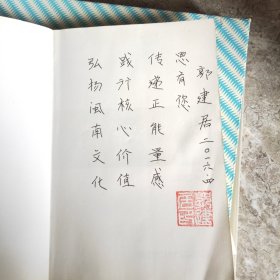 弘扬闽南文化
践行核心价值
传递正能量感
恩有您
郭建居二〇一六.四